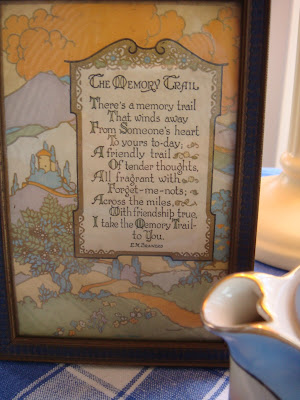 The Memory Trail
There's a memory trail
That winds away
From Someone's heart
To yours to-day;
A friendly trail
Of tender thoughts,
All fragrant with
Forget-me-nots;
Across the miles,
With friendship true,
I take the Memory Trail-
to You.